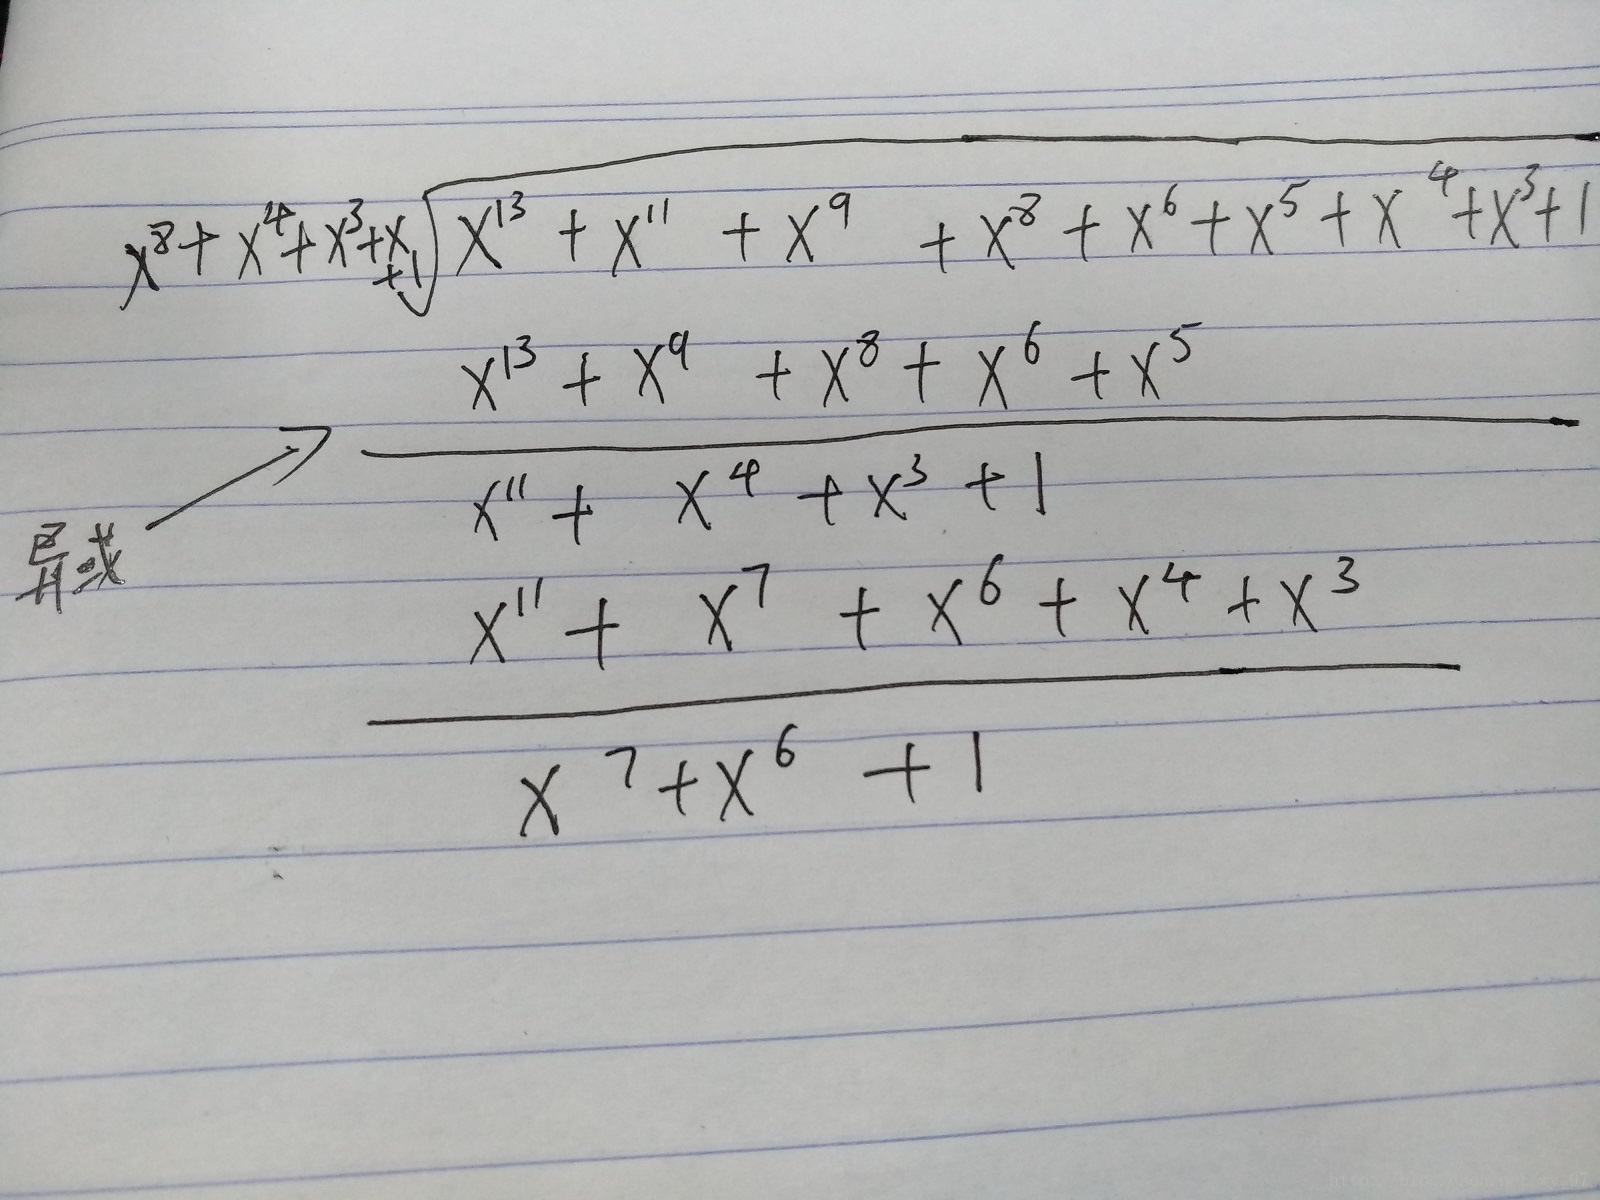 x⁸ + x⁴ + x³ + x + 1 √ x¹³ + x¹¹ + x⁹ + x⁸ + x⁶ + x⁵ + x⁴ + x³ + 1
x¹³ + x⁹ + x⁸ + x⁶ + x⁵
异或
x¹¹ + x⁴ + x³ + 1
x¹¹ + x⁷ + x⁶ + x⁴ + x³
x⁷ + x⁶ + 1